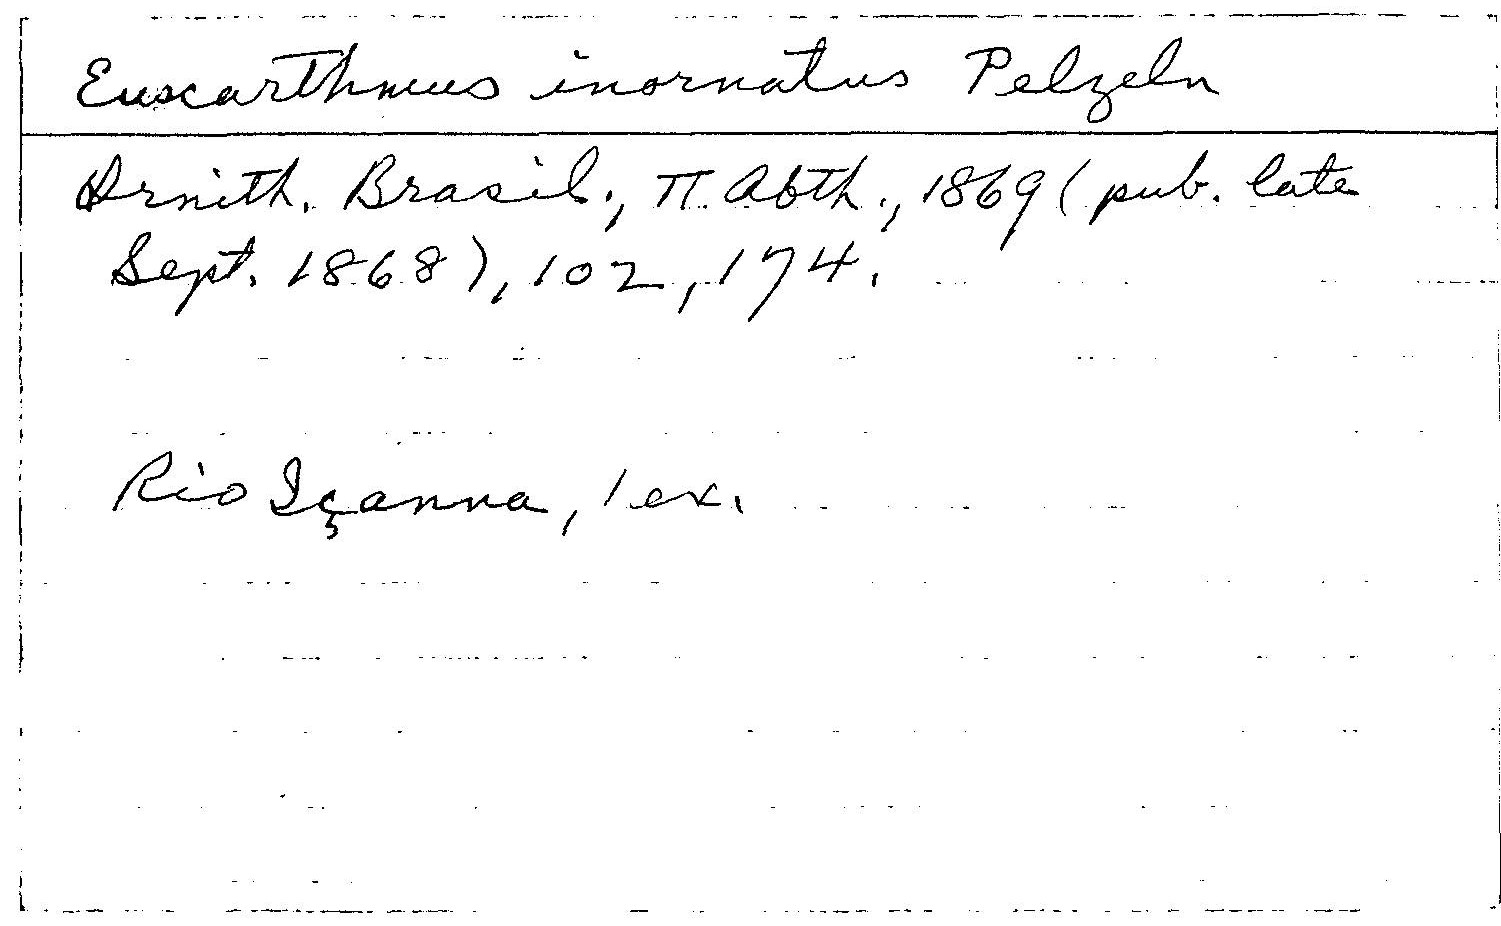 Euscarthmus inornatus Pelzeln
Ornith. Brasil., II. Abth., 1869 (pub. late
Sept. 1868), 102, 174.
Rio Içanna, 1 ex.